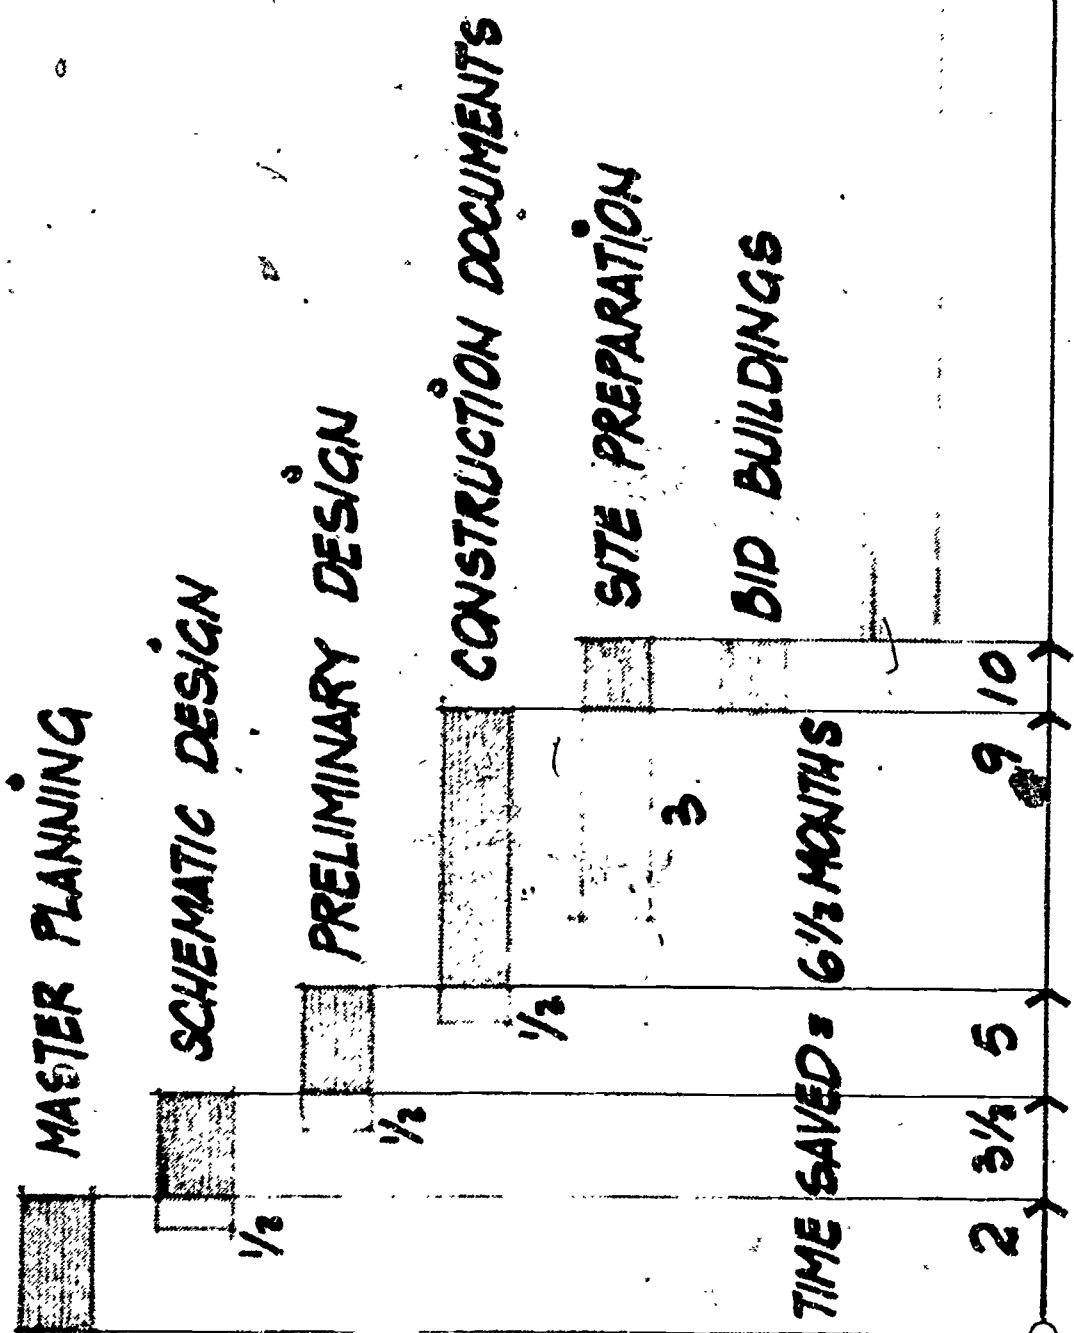 MASTER PLANNING
1/2
SCHEMATIC DESIGN
1/2
PRELIMINARY DESIGN
1/2
CONSTRUCTION DOCUMENTS
3
SITE PREPARATION
BID BUILDINGS
TIME SAVED = 6 1/2 MONTHS
2 3 1/2 5 9 10